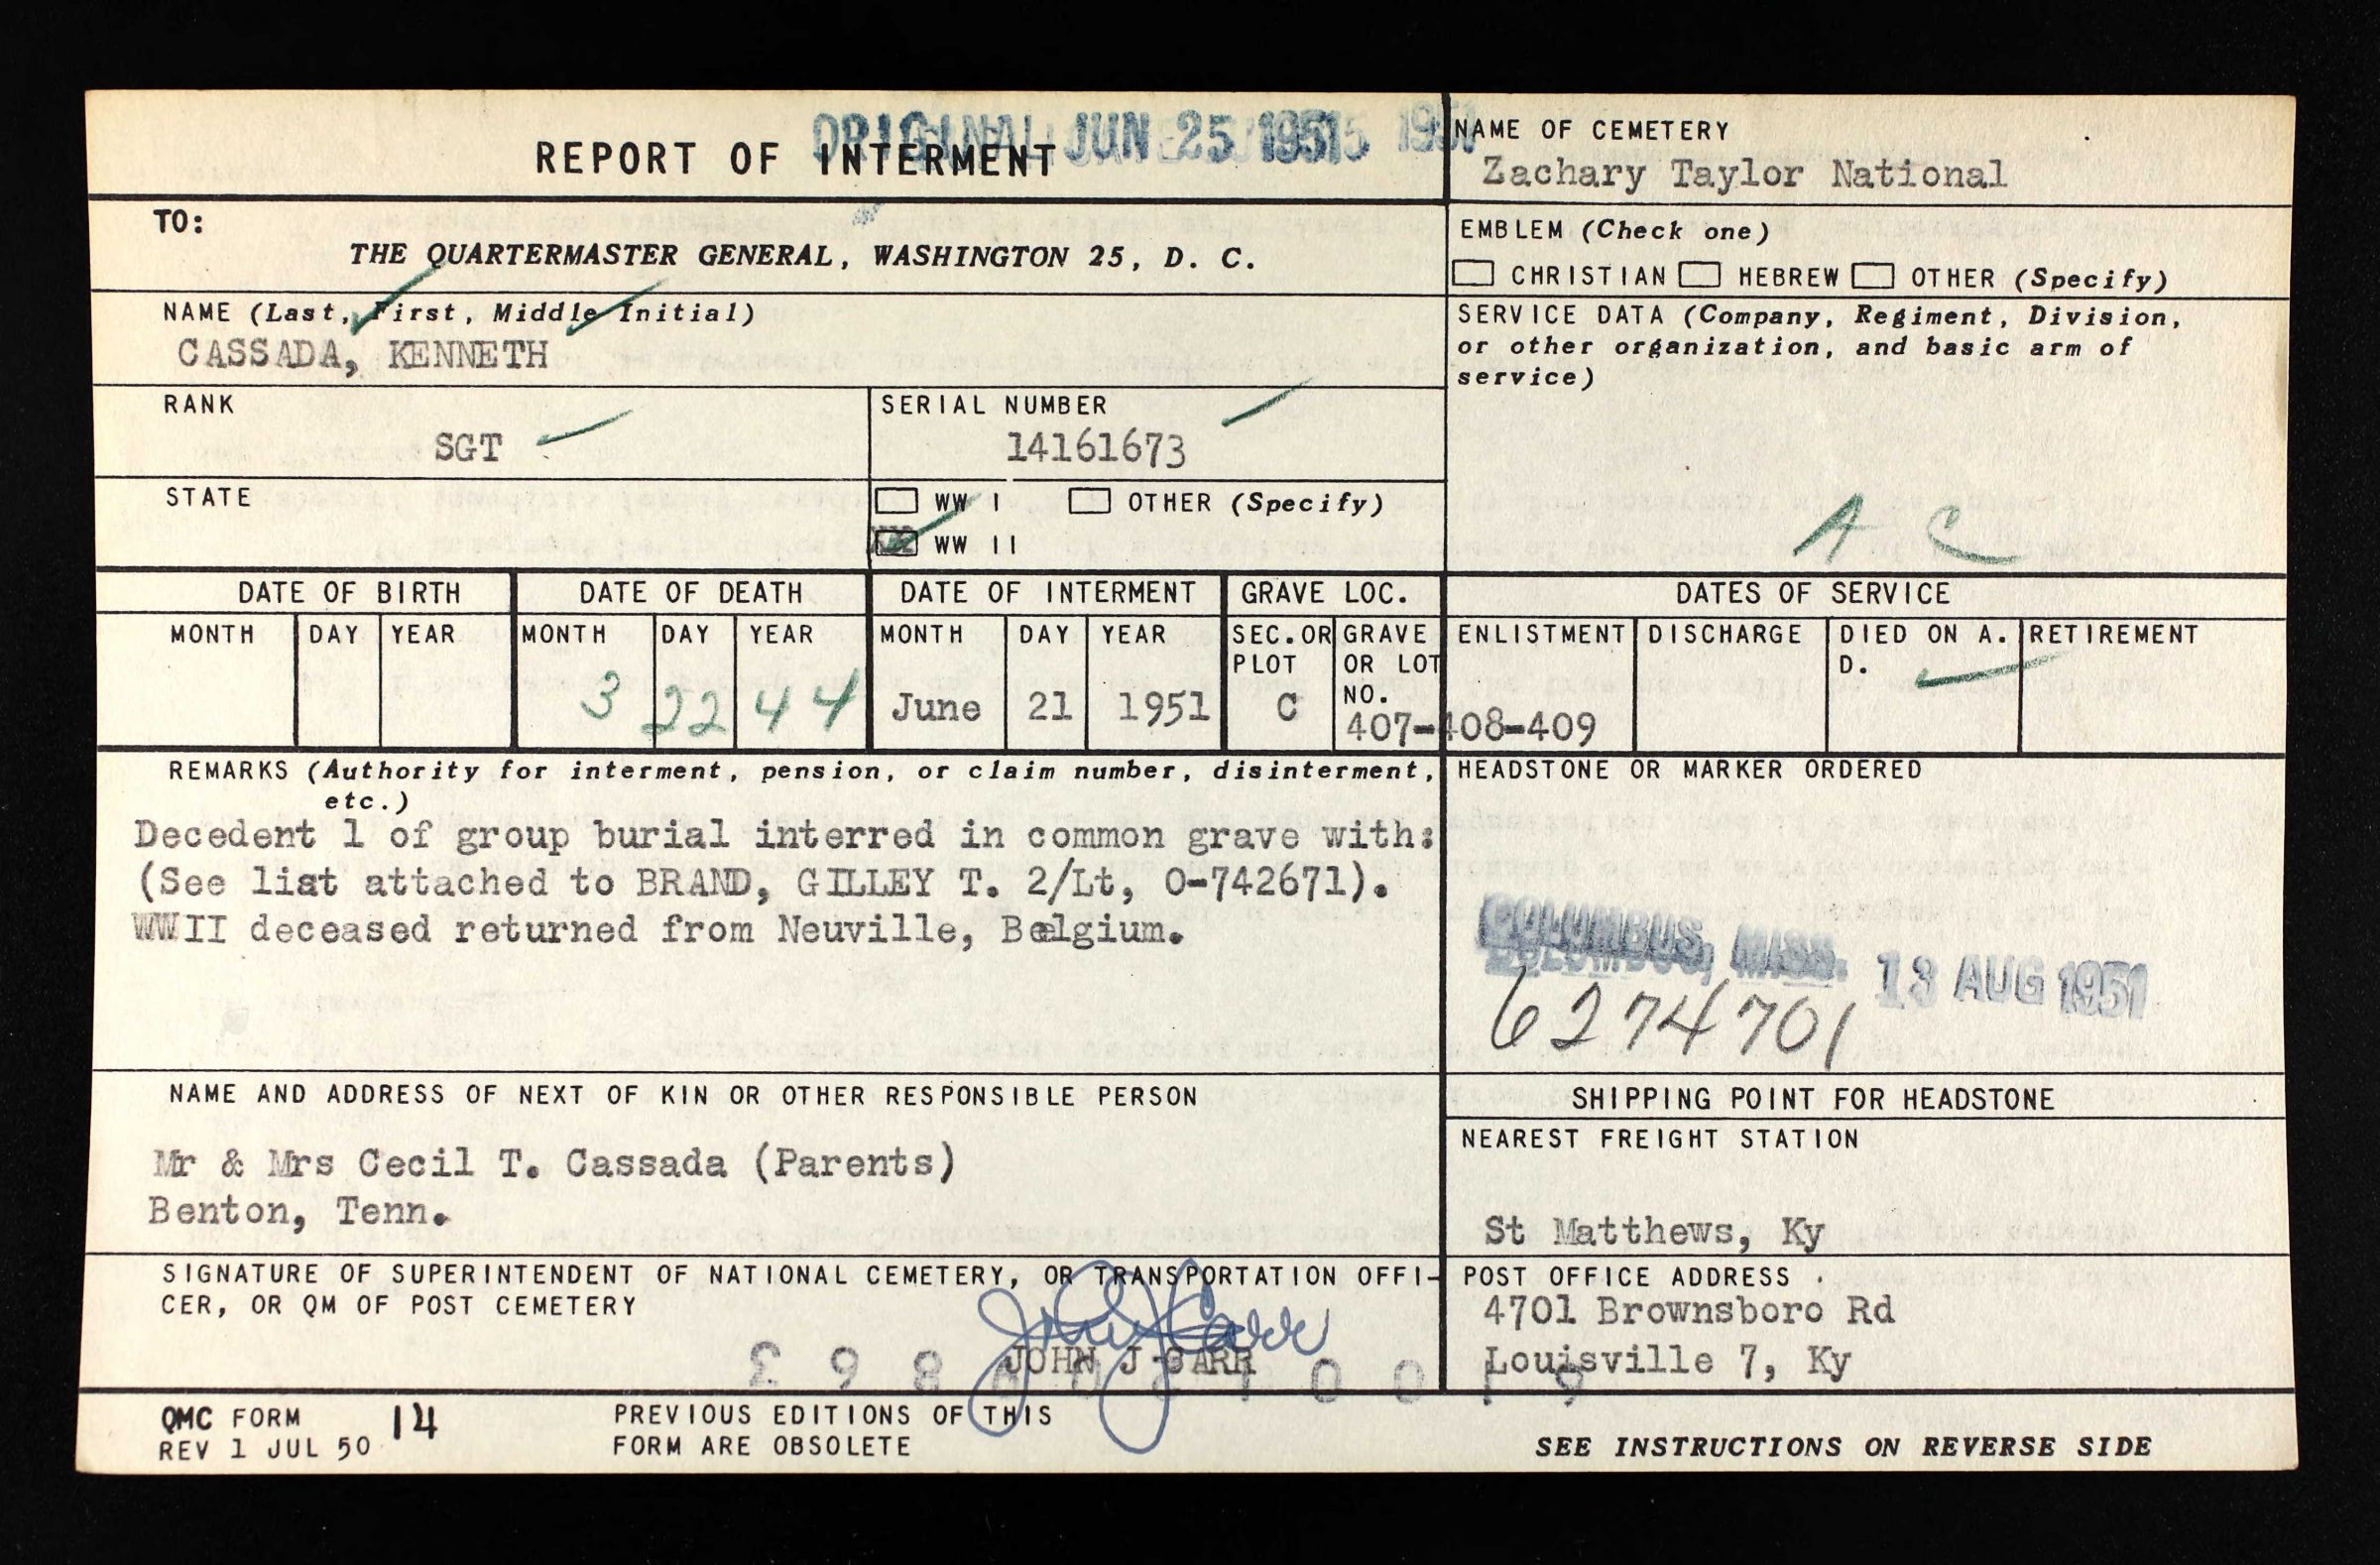 REPORT OF INTERMENT
ORIGINAL JUN 25 1951
NAME OF CEMETERY
Zachary Taylor National
TO:
THE QUARTERMASTER GENERAL, WASHINGTON 25, D. C.
EMBLEM (Check one)
CHRISTIAN HEBREW OTHER (Specify)
NAME (Last, First, Middle Initial)
CASSADA, KENNETH
SERVICE DATA (Company, Regiment, Division,
or other organization, and basic arm of
service)
A C
RANK
SGT
SERIAL NUMBER
14161673
STATE
WW I OTHER (Specify)
WW II
DATE OF BIRTH DATE OF DEATH DATE OF INTERMENT GRAVE LOC. DATES OF SERVICE
MONTH DAY YEAR MONTH DAY YEAR MONTH DAY YEAR SEC. OR PLOT GRAVE OR LOT NO. ENLISTMENT DISCHARGE DIED ON A. D. RETIREMENT
3 22 44 June 21 1951 C 407-408-409
REMARKS (Authority for interment, pension, or claim number, disinterment,
etc.)
Decedent 1 of group burial interred in common grave with:
(See list attached to BRAND, GILLEY T. 2/Lt, O-742671).
WWII deceased returned from Neuville, Belgium.
HEADSTONE OR MARKER ORDERED
COLUMBUS, MISS. 13 AUG 1951
6274701
NAME AND ADDRESS OF NEXT OF KIN OR OTHER RESPONSIBLE PERSON
Mr & Mrs Cecil T. Cassada (Parents)
Benton, Tenn.
SHIPPING POINT FOR HEADSTONE
NEAREST FREIGHT STATION
St Matthews, Ky
SIGNATURE OF SUPERINTENDENT OF NATIONAL CEMETERY, OR TRANSPORTATION OFFI-
CER, OR QM OF POST CEMETERY
John J Carr
JOHN J CARR
POST OFFICE ADDRESS
4701 Brownsboro Rd
Louisville 7, Ky
QMC FORM 14
REV 1 JUL 50
PREVIOUS EDITIONS OF THIS
FORM ARE OBSOLETE
SEE INSTRUCTIONS ON REVERSE SIDE